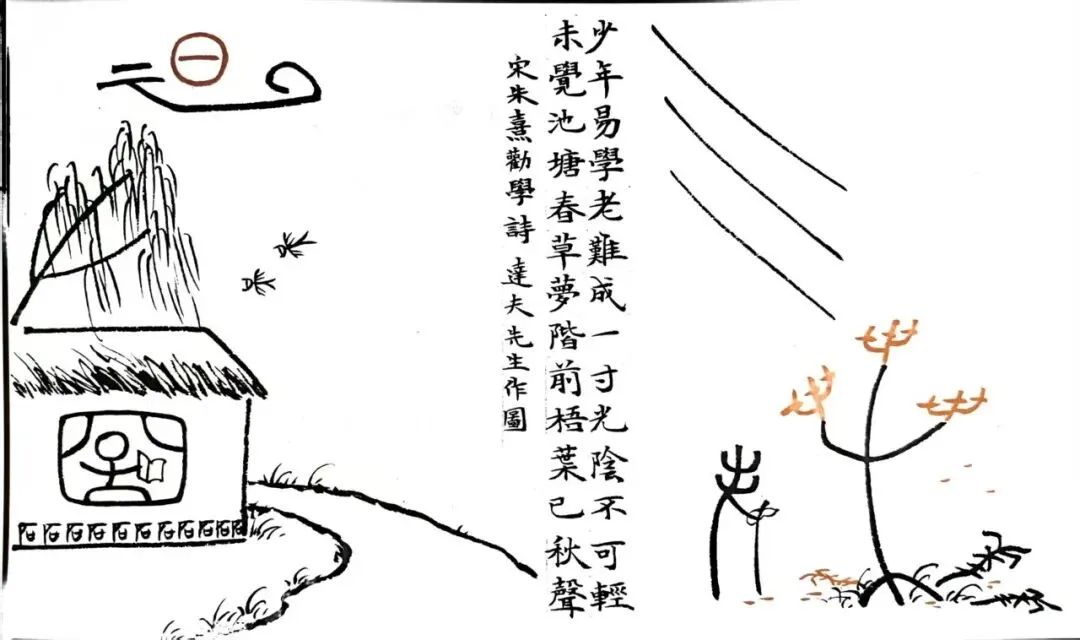 少年易學老難成一寸光陰不可輕
未覺池塘春草夢階前梧葉已秋聲
宋朱熹勸學詩 達夫先生作圖